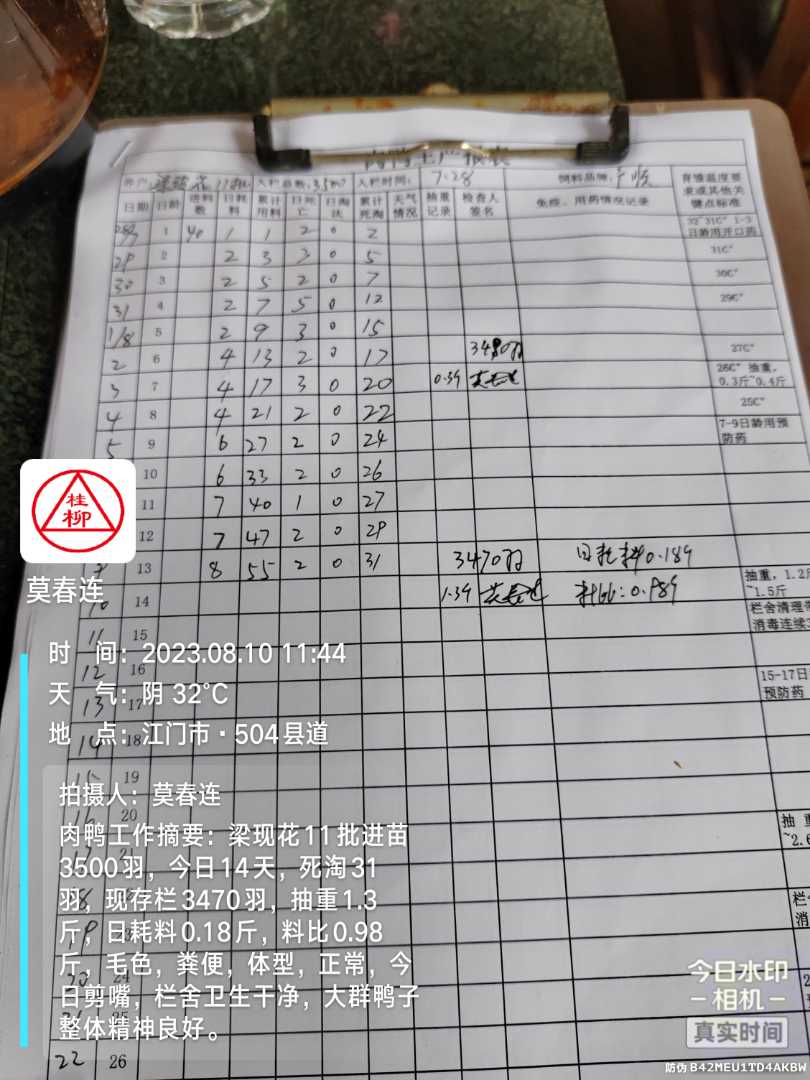 肉鸭生产报表
客户 梁现花 11批 入栏总数:3500 入栏时间: 7.28 饲料品牌: 广顺 育雏温度要求或其他关键点标准
日期 日龄 进料数 日耗料 累计用料 日死亡 日淘汰 累计死淘 天气情况 抽重记录 检查人签名 免疫、用药情况记录
28/7 1 40 1 1 2 0 2 32~31C° 1-3日龄用开口药
29 2 2 3 3 0 5 31C°
30 3 2 5 2 0 7 30C°
31 4 2 7 5 0 12 29C°
1/8 5 2 9 3 0 15
2 6 4 13 2 0 17 3480羽 27C°
3 7 4 17 3 0 20 0.39 莫春连 26C° 抽重,0.3斤~0.4斤
4 8 4 21 2 0 22 25C°
5 9 6 27 2 0 24 7-9日龄用预防药
10 6 33 2 0 26
11 7 40 1 0 27
12 7 47 2 0 29
13 8 55 2 0 31 3470羽 日耗料0.189
10 14 1.39 莫春连 料比:0.989 抽重,1.2斤~1.5斤
11 15 栏舍清理
消毒连续
12 16
13 17 15-17日
预防药
14 18
15 19
20
抽重
~2.6
18
19
22 26
桂柳
莫春连
时 间:2023.08.10 11:44
天 气:阴 32℃
地 点:江门市·504县道
拍摄人:莫春连
肉鸭工作摘要:梁现花11批进苗
3500羽,今日14天,死淘31
羽,现存栏3470羽,抽重1.3
斤,日耗料0.18斤,料比0.98
斤,毛色,粪便,体型,正常,今
日剪嘴,栏舍卫生干净,大群鸭子
整体精神良好。
今日水印
-相机-
真实时间
防伪 B42MEU1TD4AKBW